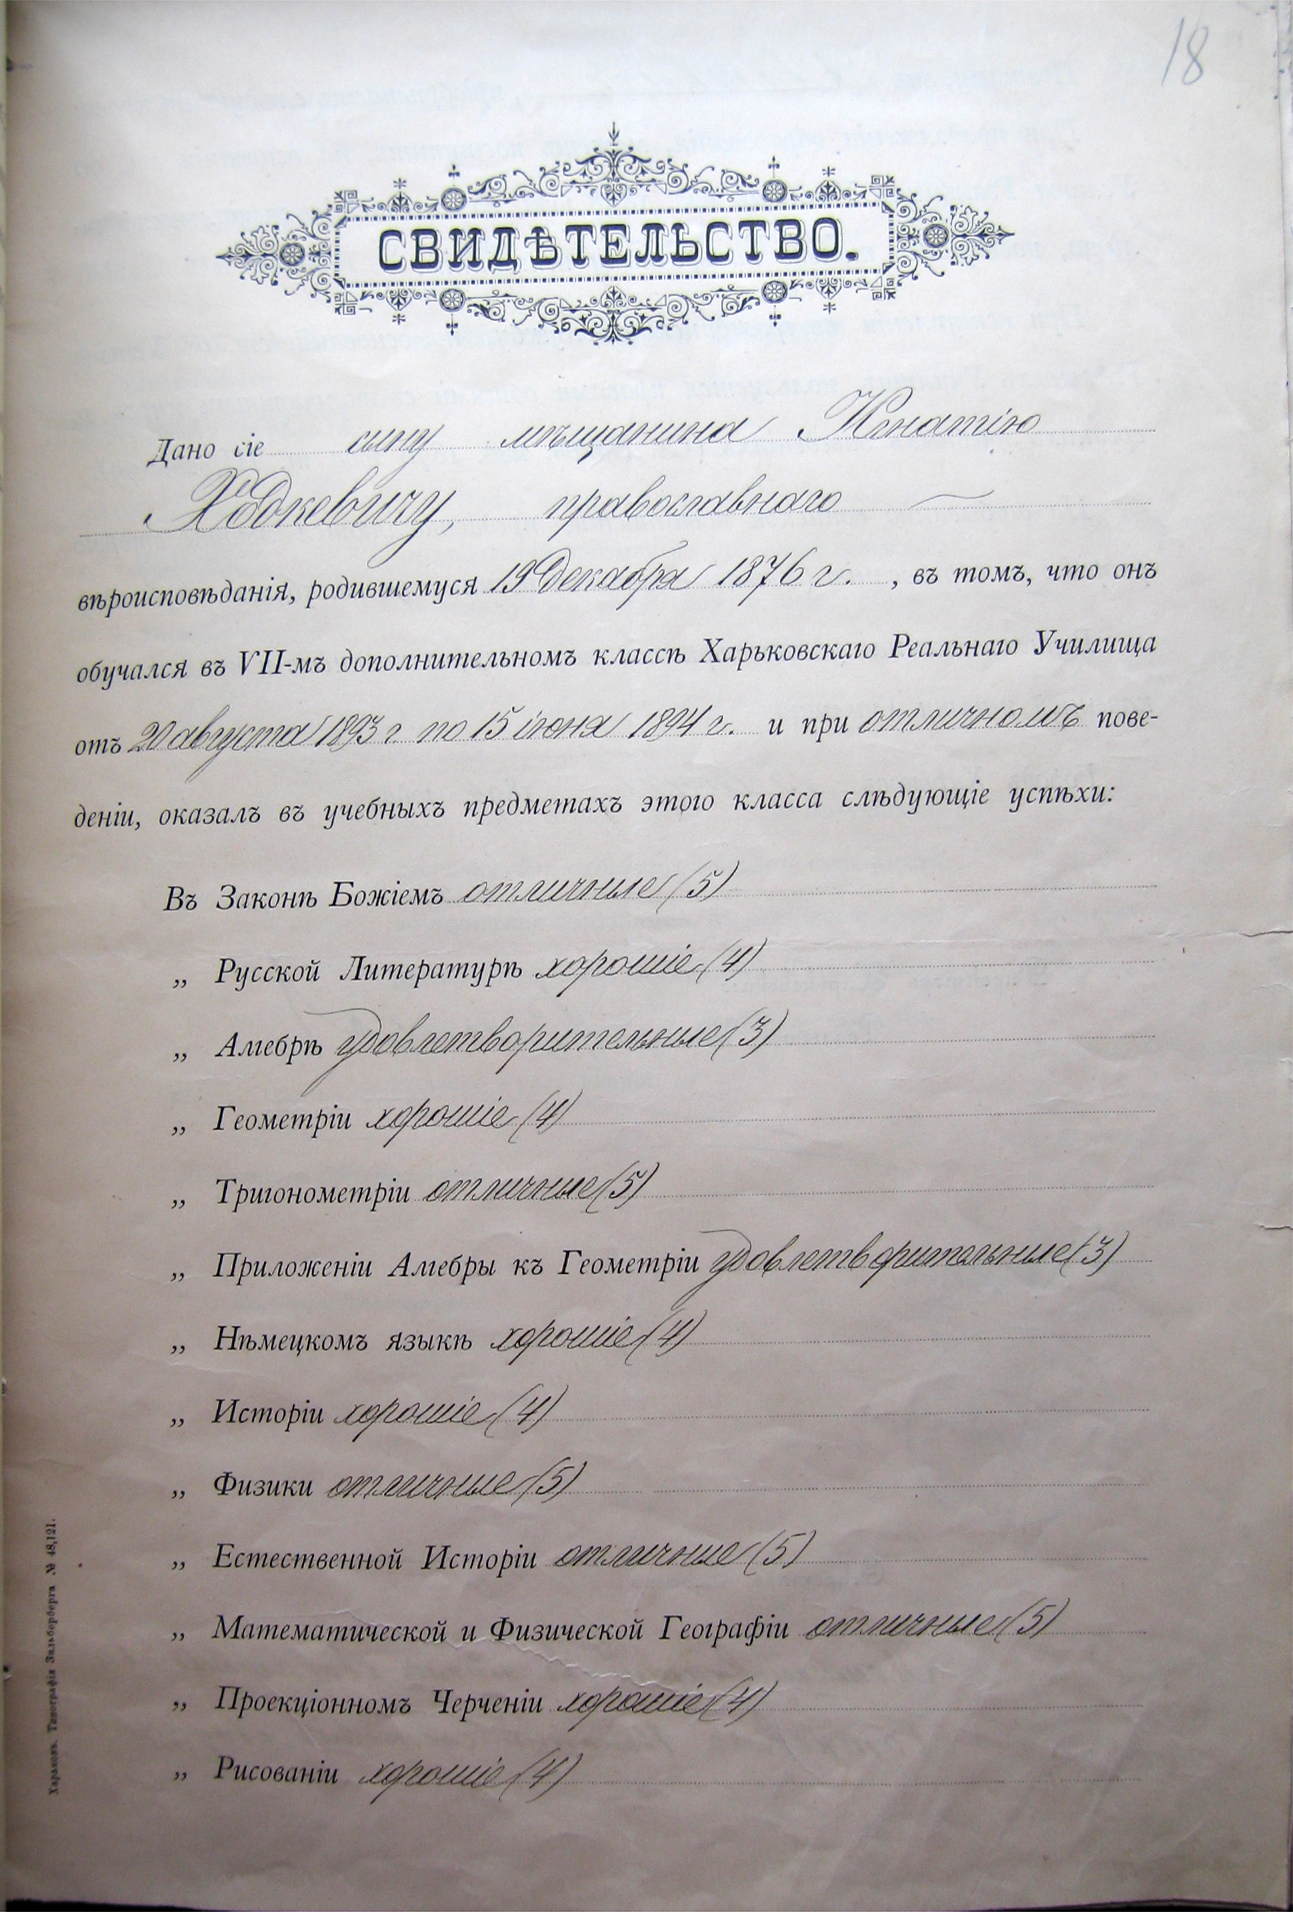 18
СВИДѢТЕЛЬСТВО.
Дано сіе сыну мѣщанина Игнатію
Ходкевичу, православнаго
вѣроисповѣданія, родившемуся 19 Декабря 1876 г. , въ томъ, что онъ
обучался въ VII-мъ дополнительномъ классѣ Харьковскаго Реальнаго Училища
отъ 20 августа 1893 г. по 15 іюня 1894 г. и при отличномъ пове-
деніи, оказалъ въ учебныхъ предметахъ этого класса слѣдующіе успѣхи:
Въ Законѣ Божіемъ отличные (5)
„ Русской Литературѣ хорошіе (4)
„ Алгебрѣ удовлетворительные (3)
„ Геометріи хорошіе (4)
„ Тригонометріи отличные (5)
„ Приложеніи Алгебры къ Геометріи удовлетворительные (3)
„ Нѣмецкомъ языкѣ хорошіе (4)
„ Исторіи хорошіе (4)
„ Физики отличные (5)
„ Естественной Исторіи отличные (5)
„ Математической и Физической Географіи отличные (5)
„ Проекціонномъ Черченіи хорошіе (4)
„ Рисованіи хорошіе (4)
Харьковъ. Типографія Зильберберга № 48,121.